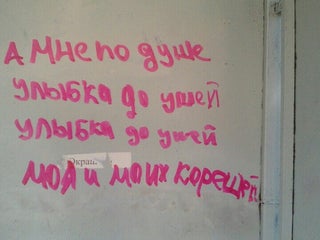 А МНЕ ПО ДУШЕ
УЛЫБКА ДО УШЕЙ
УЛЫБКА ДО УШЕЙ
Экран
МОЯ И МОИХ КОРЕШЕЙ